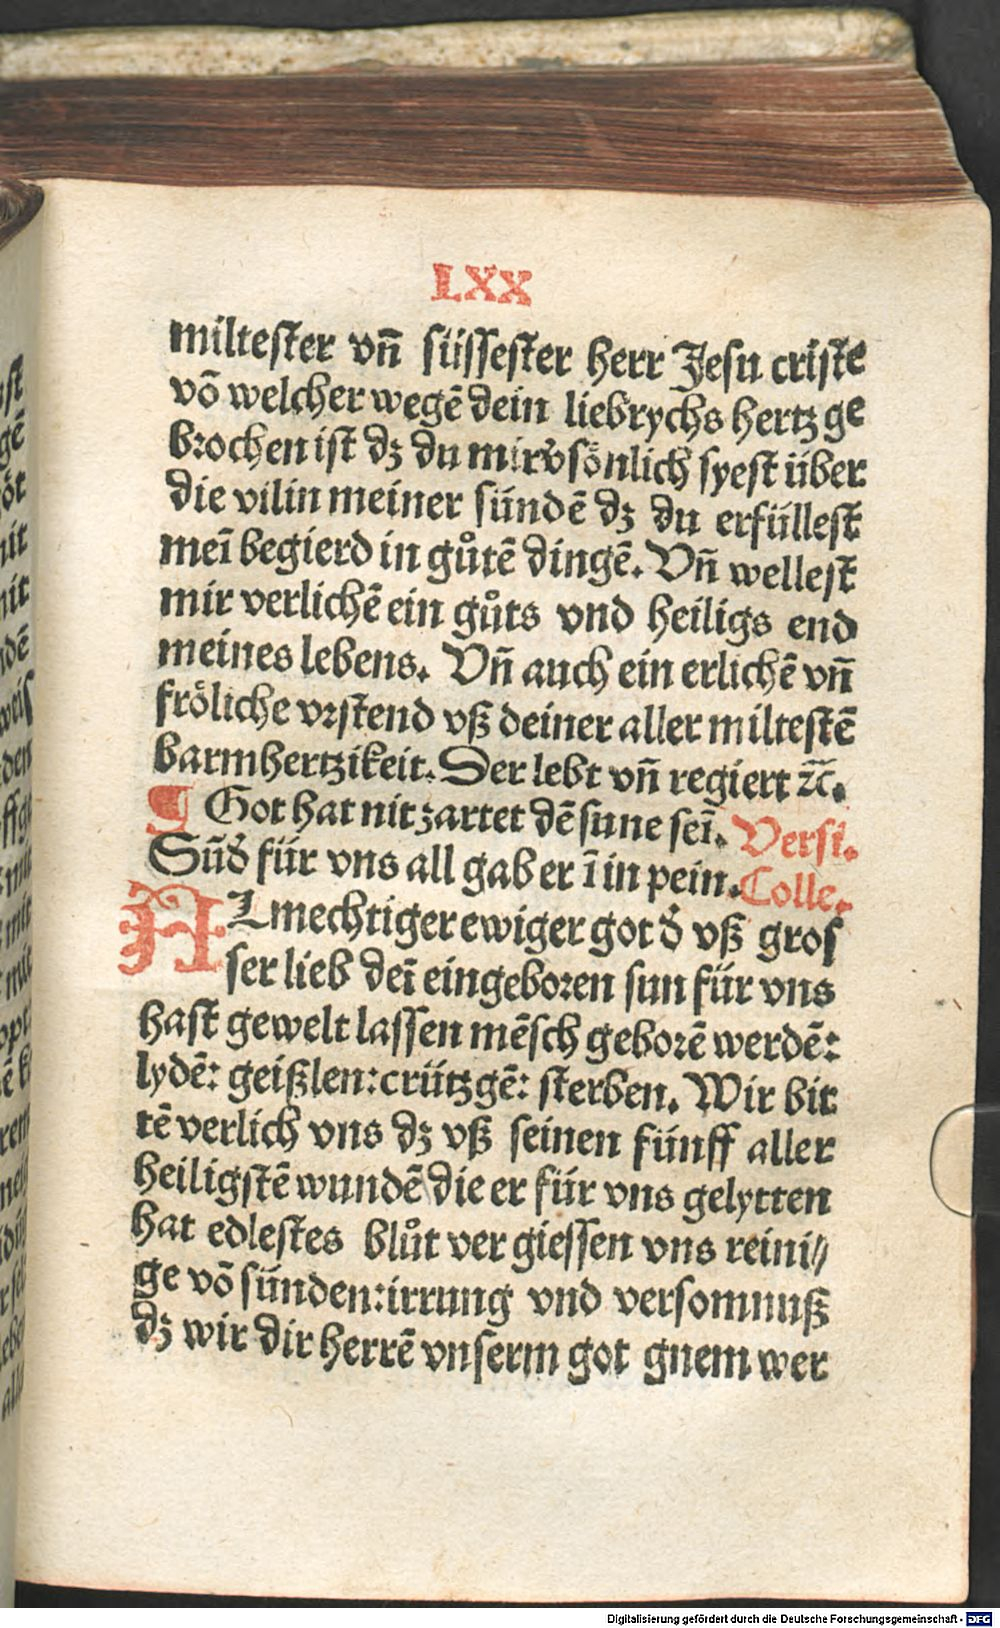 LXX
miltester vñ süssester herr Jesu criste
võ welcher wegẽ dein liebrychs hertz ge
brochen ist dz du mir v̾sönlich syest über
die vilin meiner sündẽ dz du erfüllest
meĩ begierd in gůtẽ dingẽ. Vñ wellest
mir verlichẽ ein gůts vnd heiligs end
meines lebens. Vñ auch ein erlichẽ vñ
fröliche vrstend vß deiner aller miltestẽ
barmhertzikeit. Der lebt vñ regiert ⁊c̃.
¶ Got hat nit zartet dẽ sune seĩ. Versi.
Sũd̾ für vns all gab er ĩ in pein. Colle.
ALmechtiger ewiger got d̾ vß gros
ser lieb deĩ eingeboren sun für vns
hast gewelt lassen mẽsch geborẽ werdẽ:
lydẽ: geißlen: crützgẽ: sterben. Wir bit
tẽ verlich vns dz vß seinen fünff aller
heiligstẽ wundẽ die er für vns gelytten
hat edlestes blůt ver giessen vns reini⸗
ge võ sünden: irrung vnd versomnuß
dz wir dir herrẽ vnserm got gnem wer
Digitalisierung gefördert durch die Deutsche Forschungsgemeinschaft - DFG